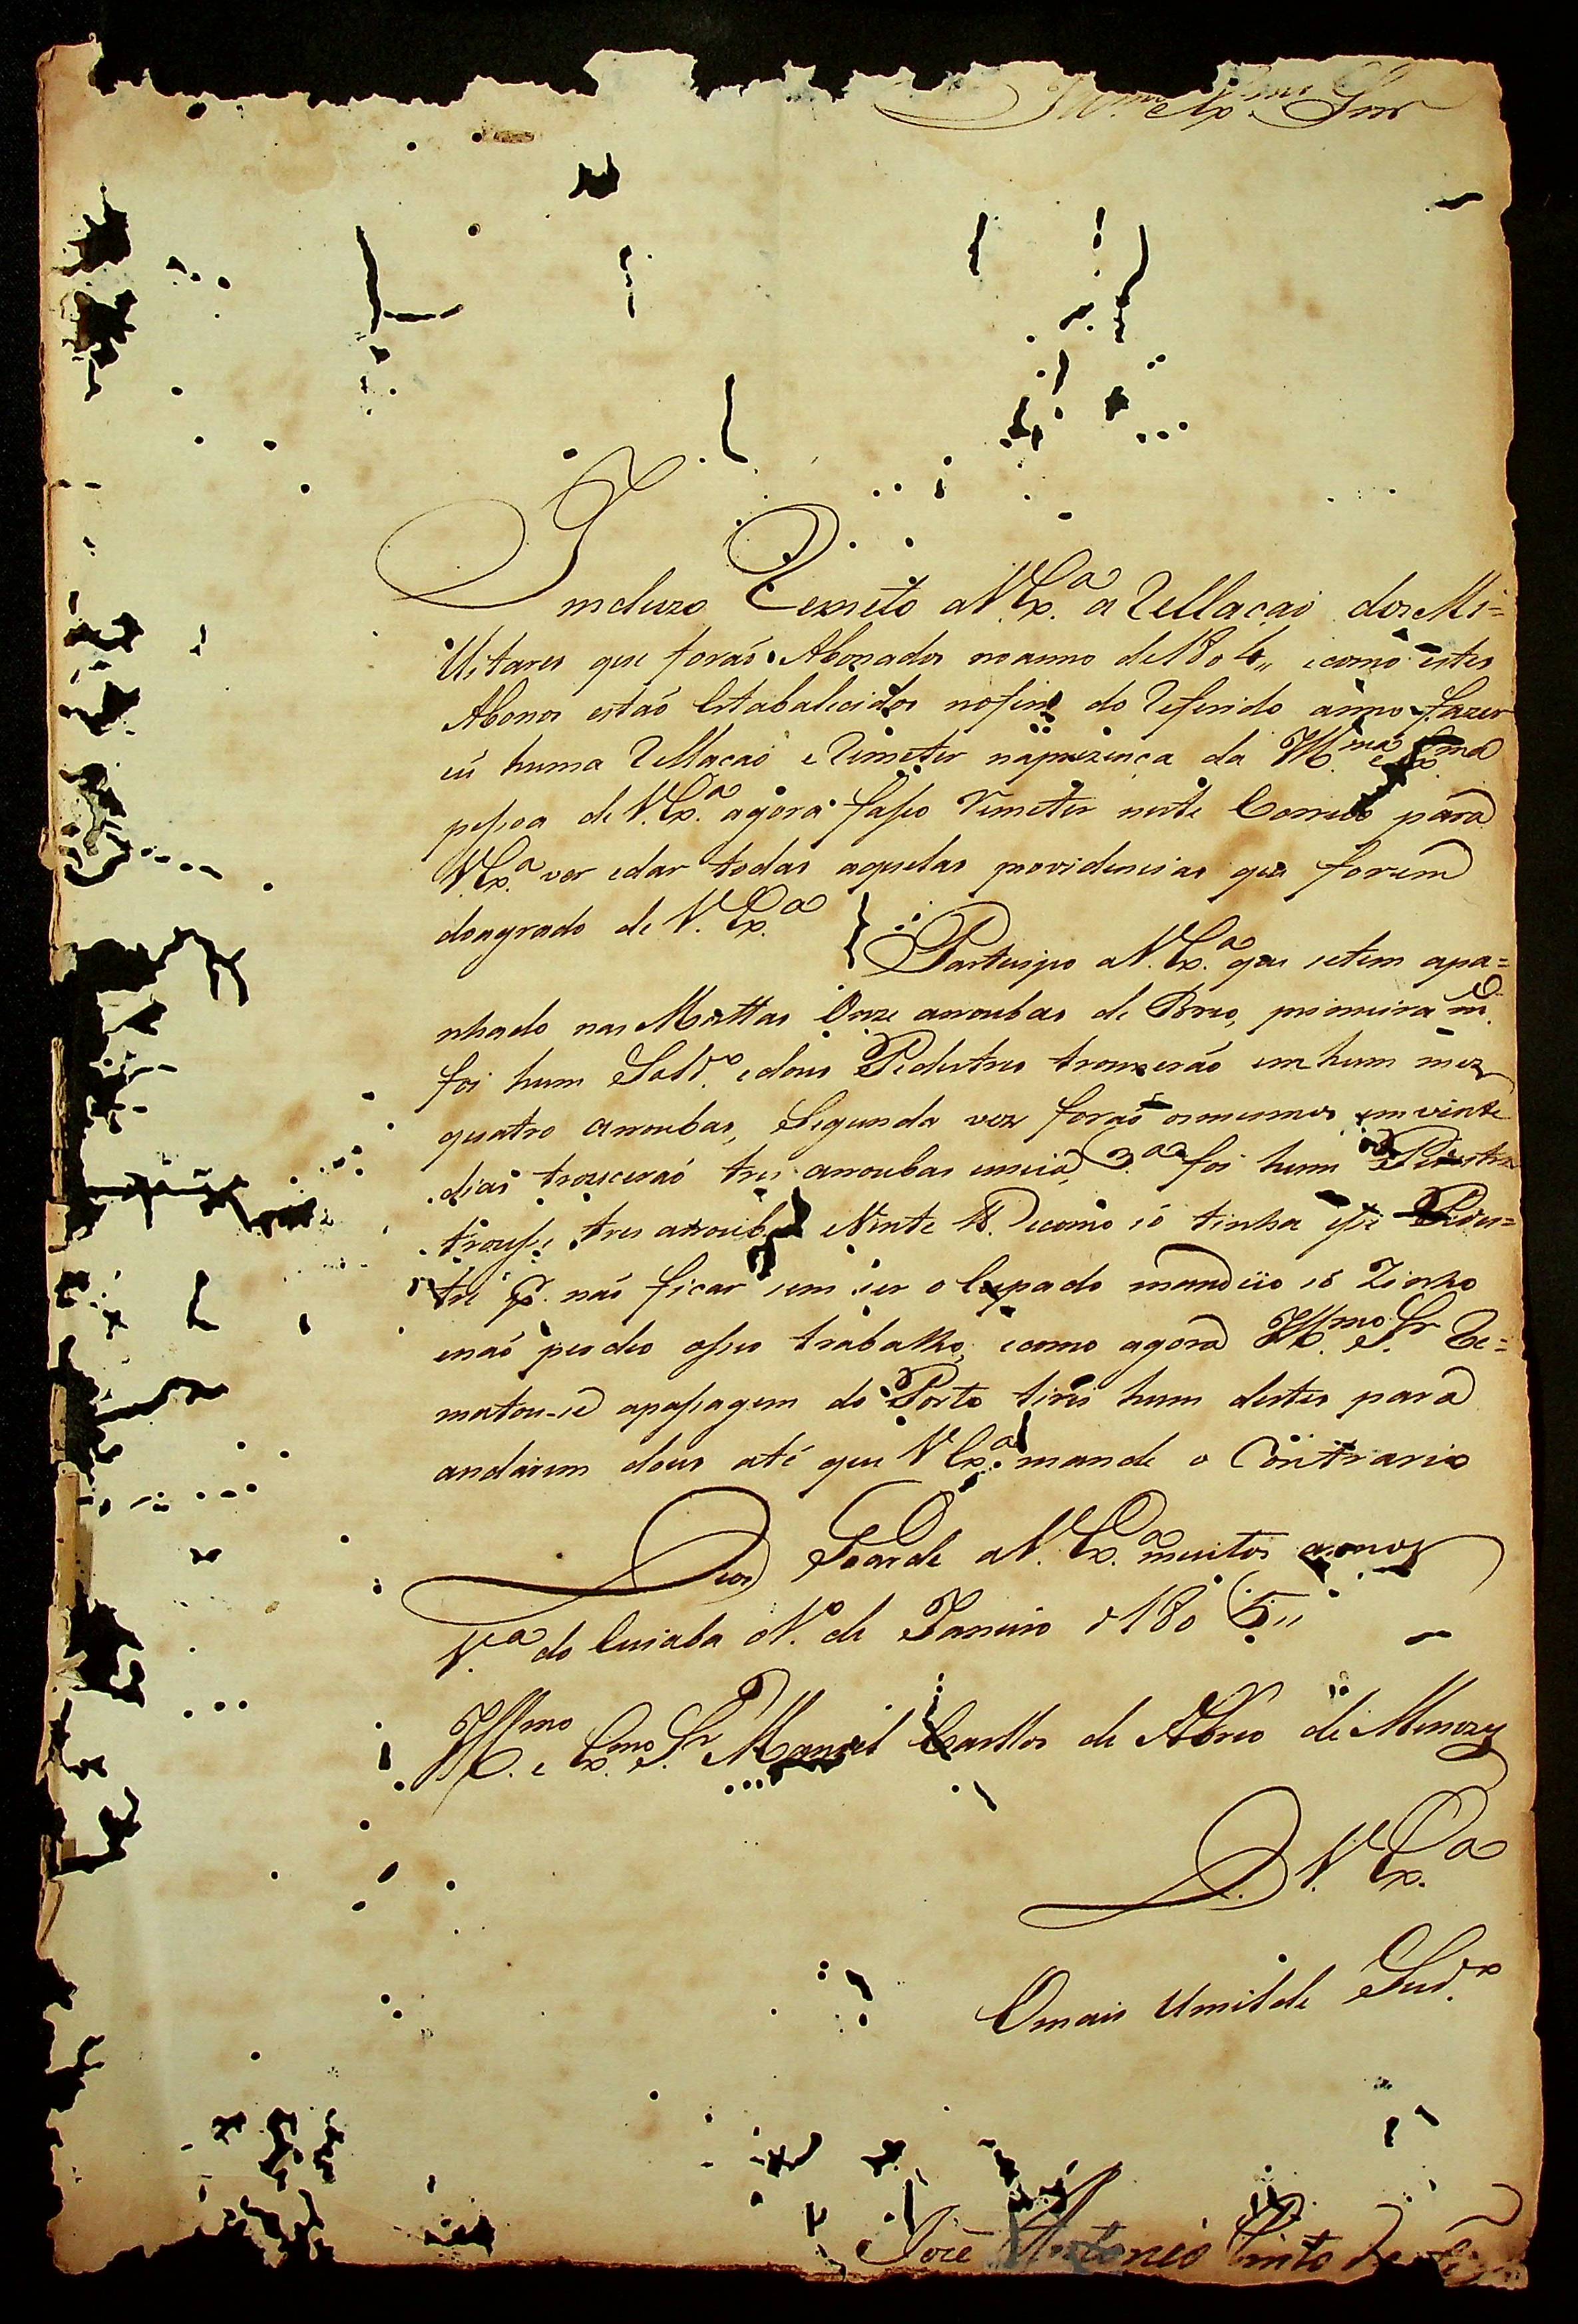 Ill.mo e Ex.mo Snr
Incluzo Remeto a V. Ex.a a Rellacaõ dos Mi=
litares que foraõ Abonados no anno de 1804,, e como estes
Abonos estaõ Estabalecidos no fim do Referido anno fazer
eú huma Rellacaõ e Remeter na prezença da Ill.ma e Ex.ma
peſsoa de V. Ex.a agora faſso Remeter neste Correio para
V. Ex.a ver e dar todas aquelas providencias que forem
do agrado de V. Ex.a
Partecipo a V. Ex.a que se tem apa=
nhado nas Mattas Onze arroubas de Breo, primeira
foi hum Sold.o e dous Pedestres trouxeraõ em hum mez
quatro arroubas, Segunda vez foraõ os mesmos em vinte
dias trouceraõ tres arroubas e meia, 3.a foi hum Pedestre
trouſse tres arroubas e Vinte lb. e como só tinha eſse Pedes=
tre p. naõ ficar sem ser o Cupado mandeio só Zinho
e naõ perdeo oſseo trabalho, e como agora Ill.mo Sr. Re=
matou-se a paſsagem do Porto tirei hum destes para
andarem dous até que V. Ex.a mande o Contrario
Deos Goarde a V. Ex.a muitos annos
V.a do Cuiaba N. de Janeiro d 1805,,
Ill.mo e Ex.mo Sr. Manoel Carllos de Abreo de Menezes
D. V. Ex.a
O mais Umilde Sud.o
José Antonio Pinto de